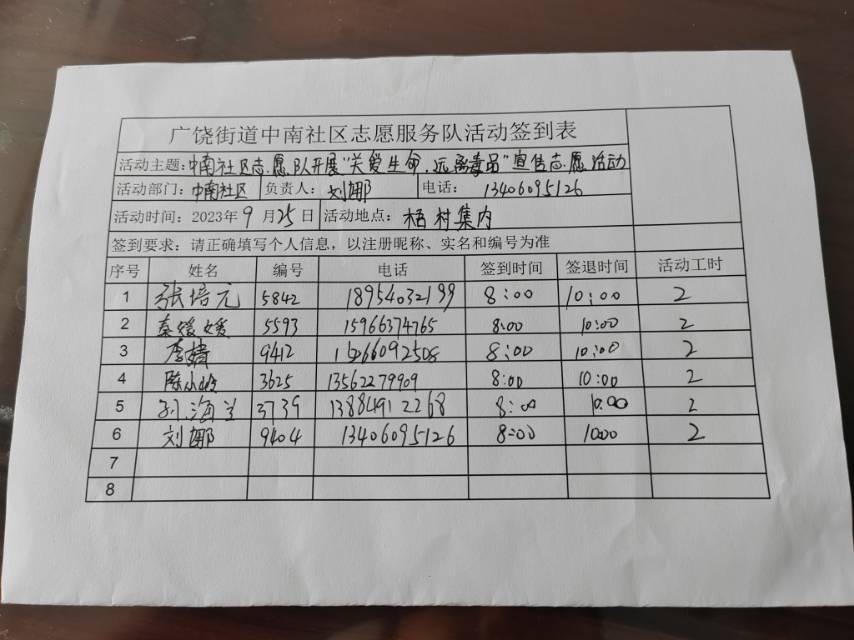 广饶街道中南社区志愿服务队活动签到表
活动主题:中南社区志愿队开展"关爱生命,远离毒品"宣传志愿活动
活动部门:中南社区 负责人:刘娜 电话: 13406095126
活动时间:2023年9月25日 活动地点: 村集内
签到要求:请正确填写个人信息,以注册昵称、实名和编号为准
序号 姓名 编号 电话 签到时间 签退时间 活动工时
1 张培元 5842 18954032199 8:00 10:00 2
2 秦媛媛 5593 15966374765 8:00 10:00 2
3 李婧 9412 15266092508 8:00 10:00 2
4 陈小 3625 13562279909 8:00 10:00 2
5 孙海兰 3739 13884912268 8:00 10:00 2
6 刘娜 9404 13406095126 8:00 10:00 2
7
8